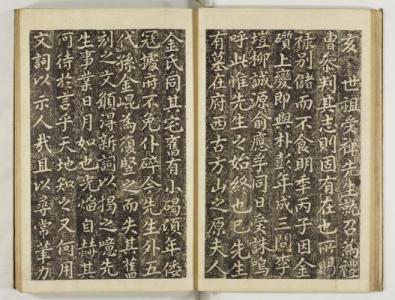 亥 世祖受禪先生就召為禮
曹參判其志則固有在也所賜
祿別儲而不食明年丙子因金
礩上變即與朴彭年成三問李
塏柳誠原俞應孚同日受誅嗚
呼此惟先生之始終也已先生
有墓在府西古方山之原夫人
金氏同其宅舊有小碣頃年倭
寇據府不免仆碎今先生外五
代孫金崐為復竪之而失其舊
刻之文願得新詞以揭之噫先
生事業日月如也光焰自赫其
何待於言乎天地知之又何用
文詞以示人哉且以尋常筆力